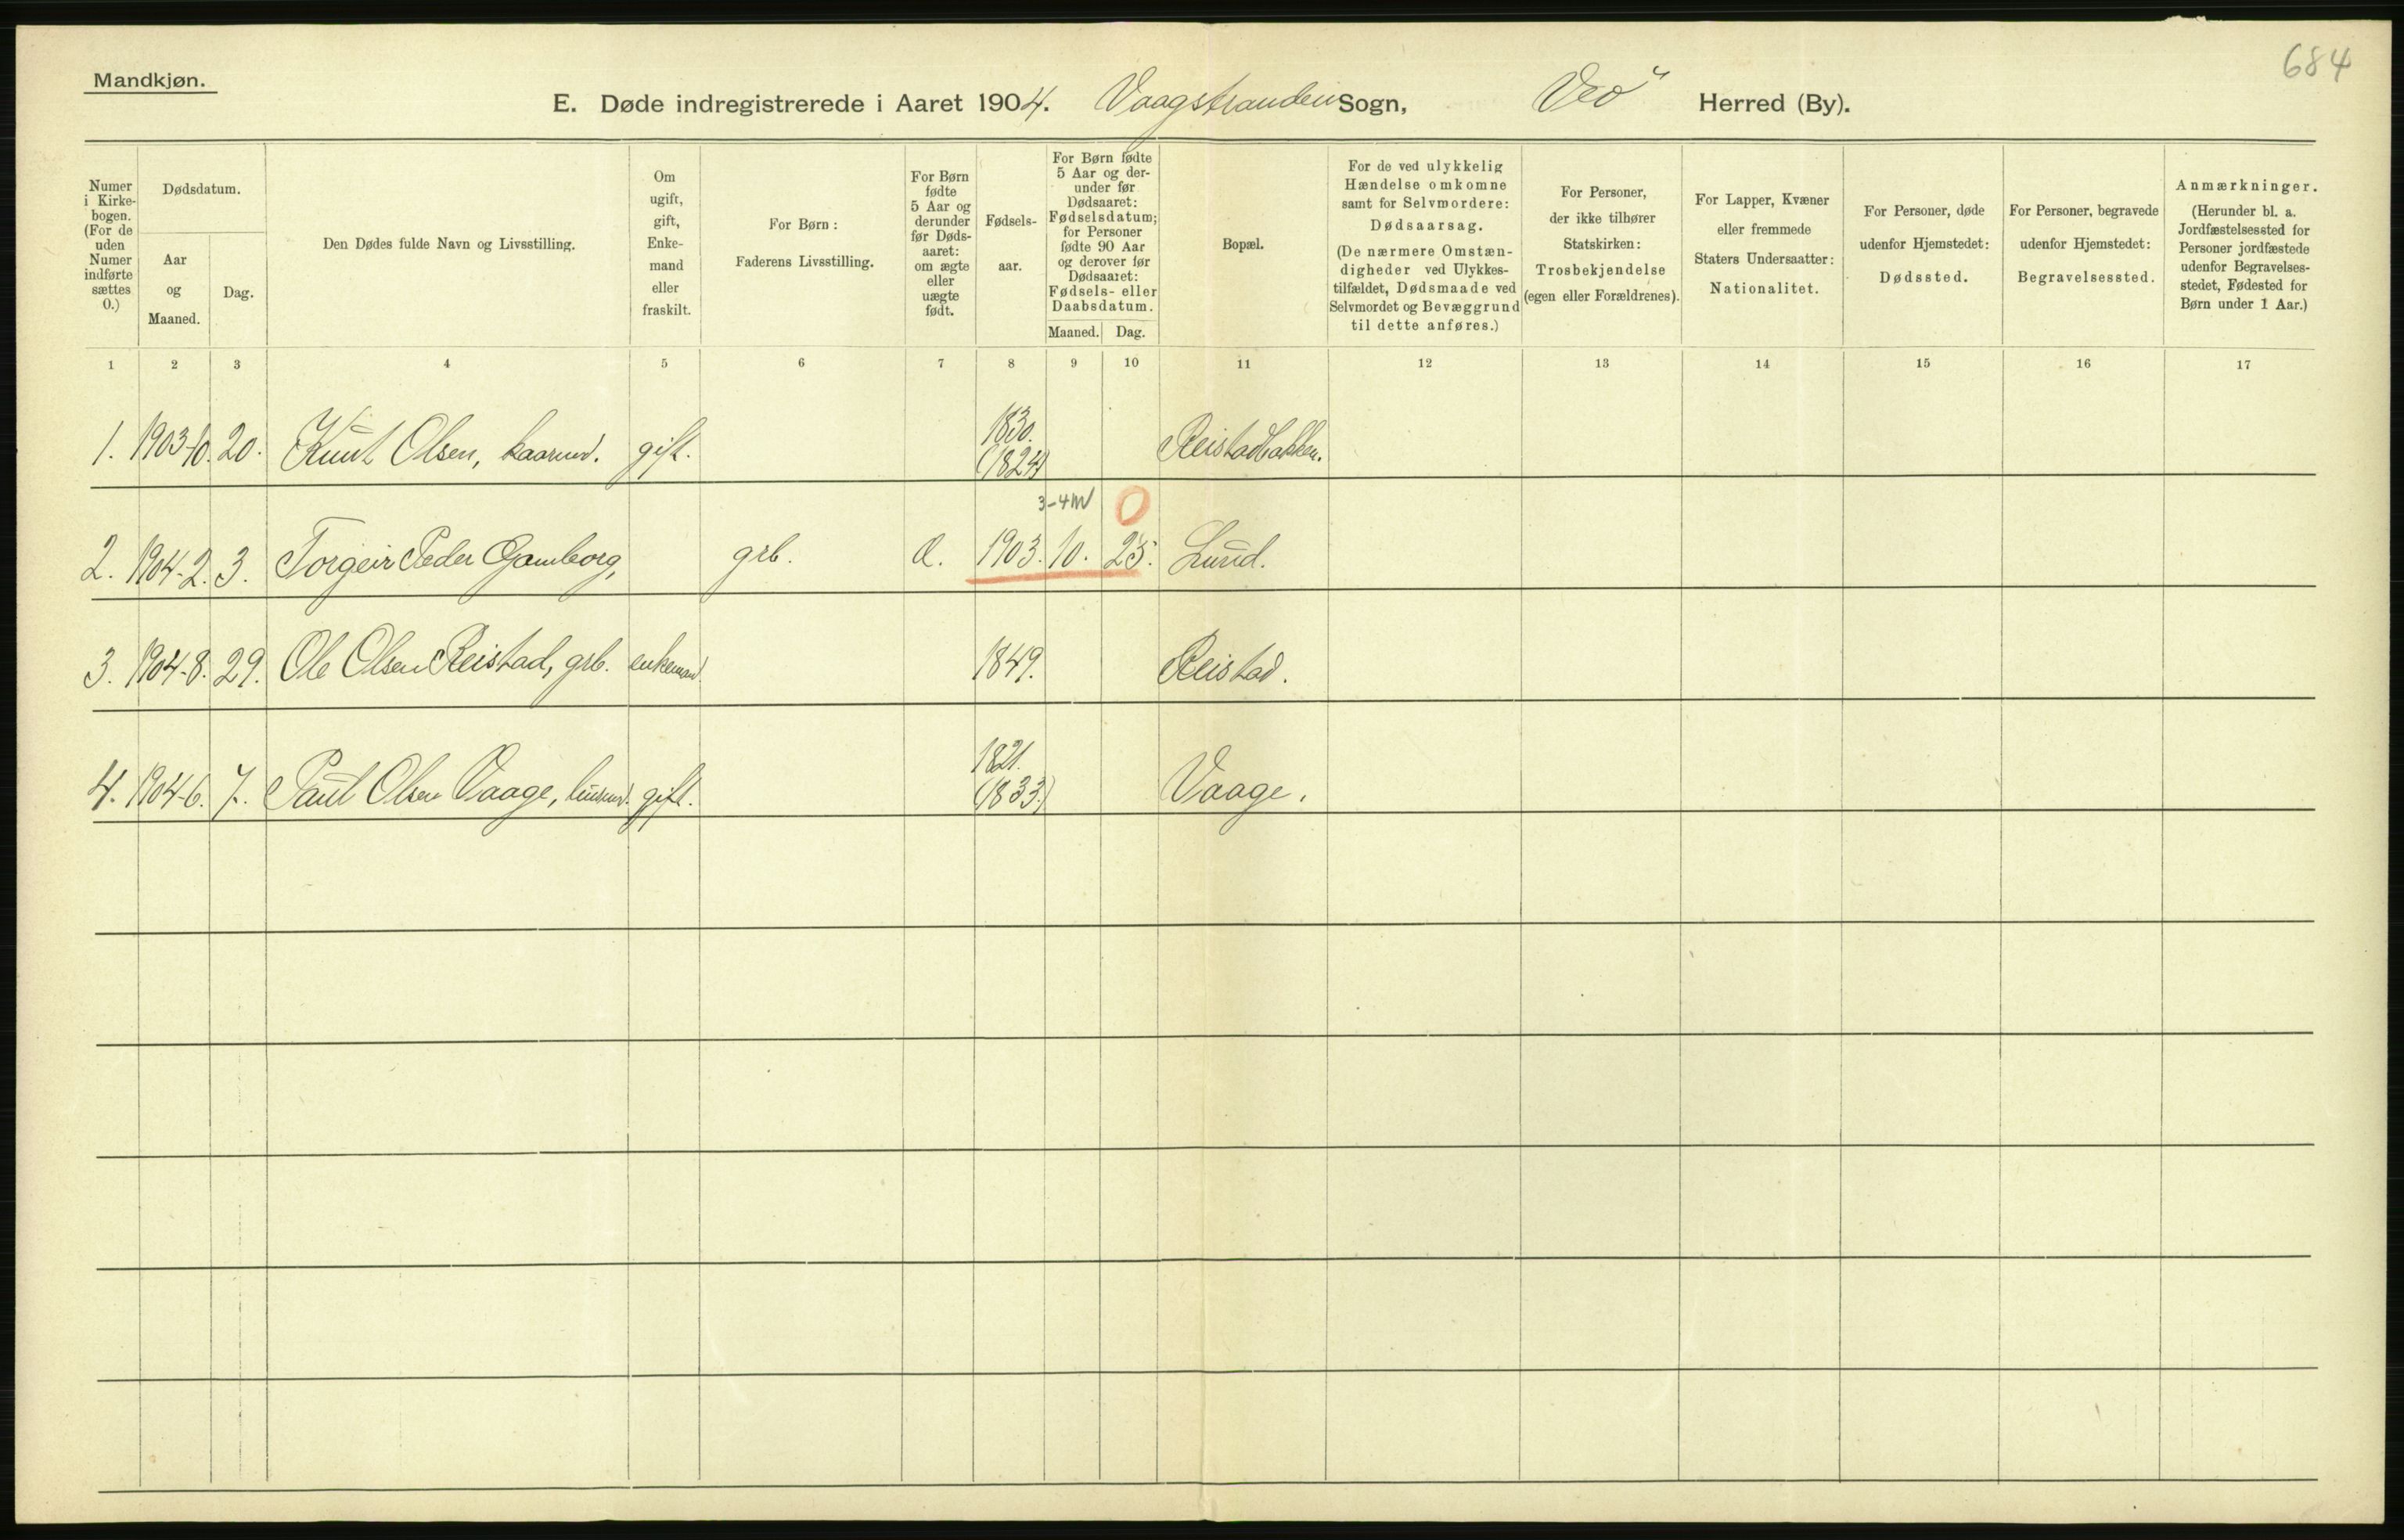 684
Mandkjøn.
E. Døde indregistrerede i Aaret 1904. Vaagstranden Sogn, Veö Herred (By).
Numer i Kirkebogen. (For de uden Numer indførte sættes 0.)
Dødsdatum.
Aar og Maaned.
Dag.
Den Dødes fulde Navn og Livsstilling.
Om ugift, gift, Enkemand eller fraskilt.
For Børn: Faderens Livsstilling.
For Børn fødte 5 Aar og derunder før Dødsaaret: om ægte eller uægte født.
Fødselsaar.
For Børn fødte 5 Aar og derunder før Dødsaaret: Fødselsdatum; for Personer fødte 90 Aar og derover før Dødsaaret: Fødsels- eller Daabsdatum.
Maaned. Dag.
Bopæl.
For de ved ulykkelig Hændelse omkomne samt for Selvmordere: Dødsaarsag. (De nærmere Omstændigheder ved Ulykkestilfældet, Dødsmaade ved Selvmordet og Bevæggrund til dette anføres.)
For Personer, der ikke tilhører Statskirken: Trosbekjendelse (egen eller Forældrenes).
For Lapper, Kvæner eller fremmede Staters Undersaatter: Nationalitet.
For Personer, døde udenfor Hjemstedet: Dødssted.
For Personer, begravede udenfor Hjemstedet: Begravelsessted.
Anmærkninger. (Herunder bl. a. Jordfæstelsessted for Personer jordfæstede udenfor Begravelsesstedet, Fødested for Børn under 1 Aar.)
1 2 3 4 5 6 7 8 9 10 11 12 13 14 15 16 17
1. 1903-10. 20. Knut Olsen, kaarmd. gift. 1830. (1824) Reistadbakken.
3-4 M 0
2. 1904-2. 3. Torgeir Peder Gamborg, grb. 1903. 10. 25. Lund.
3. 1904-8. 29. Ole Olsen Reistad, grb. enkemand 1849. Reistad.
4. 1904-6. 7. Paul Olsen Vaage, husmd. gift. 1821. (1833.) Vaage.